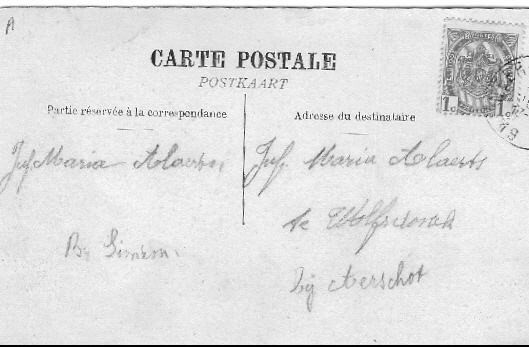 A
CARTE POSTALE
POSTKAART
Partie réservée à la correspondance
Adresse du destinataire
Juf Maria Alaerts
Br Simeon.
Juf. Maria Alaerts
te Wolfsdonck
bij Aerschot
1 1